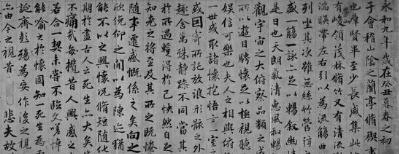 永和九年歲在癸丑暮春之初
于會稽山陰之蘭亭脩禊事
也羣賢畢至少長咸集此
峻領茂林脩竹又有清流
湍暎帶左右引以為流觴曲
盛一觴一詠亦足以暢敘幽
是日也天朗氣清惠風和暢
觀宇宙之大俯察品類之盛
遊目騁懷足以極視聽
娛信可樂也夫人之相與俯
一世或取諸懷抱悟言一室
或因寄所託放浪形骸之外
趣舍萬殊靜躁不同當其
於所遇蹔得於己怏然自足
知老之將至及其所之既惓
隨事遷感慨係之矣向之
欣俛仰之閒以為陳迹
能不以之興懷況脩短隨化
期於盡古人云死生亦大矣
不痛哉每攬昔人興感之
若合一契未嘗不臨文嗟悼
能喻之於懷固知一死生為
誕齊彭殤為妄作後之視
亦由今之視昔 悲夫故